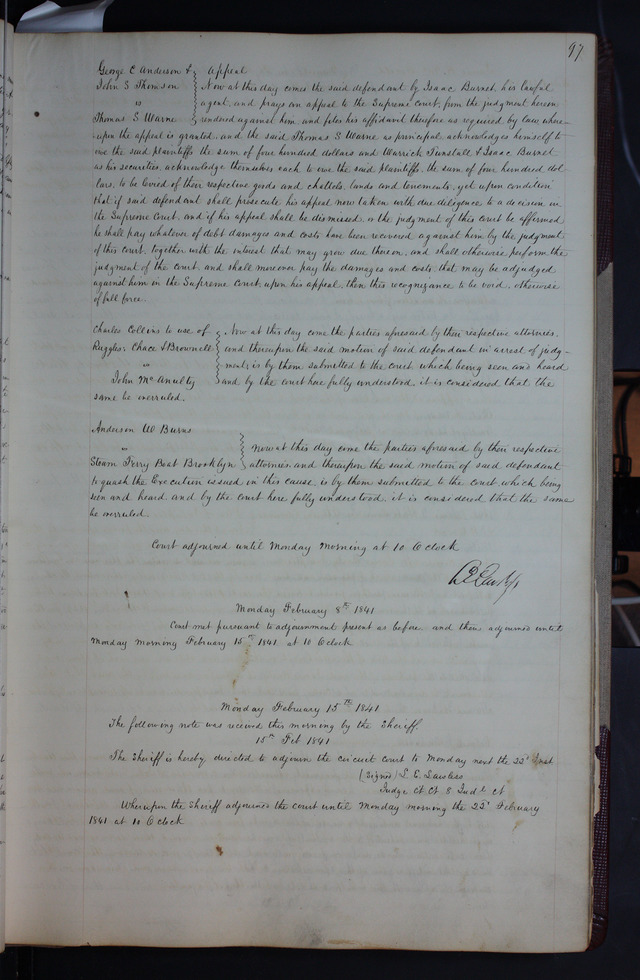 97
George C Anderson & } Appeal
John S Thomson } Now at this day comes the said defendant by Isaac Burnet, his lawful
vs } agent, and prays an appeal to the Supreme Court, from the judgment herein
Thomas S Warne } rendered against him and files his affidavit therefore as required by law, where
upon the appeal is granted, and the said Thomas S Warne as principal acknowledges himself to
owe the said plaintiffs the sum of four hundred dollars and Warrick Tunstall & Isaac Burnet
as his securities, acknowledge themselves each to owe the said plaintiffs, the sum of four hundred dol
lars, to be levied of their respective goods and chattels, lands and tenements, yet upon condition
that if said defendant shall prosecute his appeal now taken with due diligence to a decision in
the Supreme Court, and if his appeal shall be dismissed, or the judgment of this court be affirmed
he shall pay whatever of debt damages and costs have been recovered against him by the judgment
of this court, together with the interest that may grow due thereon, and shall otherwise perform the
judgment of the court, and shall moreover pay the damages and costs, that may be adjudged
against him in the Supreme Court, upon his appeal, then this recognizance to be void, otherwise
of full force.
Charles Collins to use of } Now at this day come the parties aforesaid by their respective attornies,
Ruggles Chace & Brownell } and thereupon the said motion of said defendant in arrest of judg-
vs } ment, is by them submitted to the court which being seen and heard
John McAnulty } and by the court here fully understood, it is considered that the
same be overruled.
Anderson W Burns
vs } Now at this day come the parties aforesaid by their respective
Steam Ferry Boat Brooklyn } attornies and thereupon the said motion of said defendant
to quash the Execution issued in this cause, is by them submitted to the court, which being
seen and heard, and by the court here fully understood it is considered that the same
be overruled
Court adjourned until Monday Morning at 10 O'clock
Monday February 8th 1841
Court met pursuant to adjournment present as before and then adjourned until
Monday morning February 15th 1841 at 10 O'clock
Monday February 15th 1841
The following note was received this morning by the Sheriff.
15th Feb 1841
The Sheriff is hereby directed to adjourn the circuit court to Monday next the 22d Inst
(Signed) L. E. Lawless
Judge Ct. Ct 8 Judl ct
Whereupon the Sheriff adjourned the court until Monday morning the 22d February
1841 at 10 O'clock